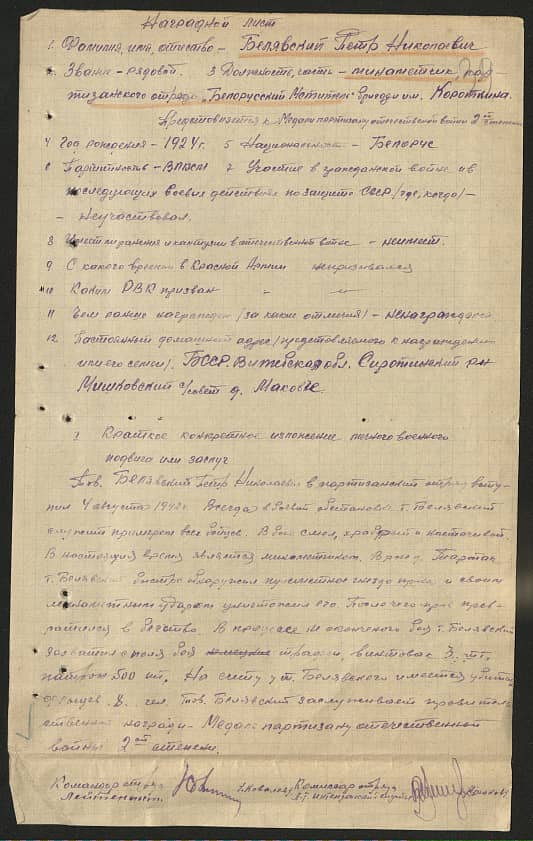 Наградной лист
1. Фамилия, имя, отчество – Белявский Петр Николаевич
2. Звание – рядовой. 3 Должность, часть – минометчик пар-
тизанского отряда „Белорусский Мститель" бригады им. Короткина.
Представляется к Медали партизану отечественной войны 2ой степени
4 Год рождения – 1924 г. 5 Национальность – Белорус
6 Партийность – ВЛКСМ 7 Участие в гражданской войне и в
последующих боевых действиях по защите СССР /где, когда/ –
– неучаствовал.
8 Имеет ли ранения и контузии в отечественной войне – неимеет.
9 С какого времени в Красной Армии непризывался
10 Каким РВК призван " – "
11 Чем раньше награжден /за какие отличия/ – ненаграждался
12. Постоянный домашний адрес /представляемого к награждению
или его семьи/. БССР. Витебская обл. Сиротинский р-н
Мишковский с/совет д.
Краткое конкретное изложение личного военного
подвига или заслуг
Тов. Белявский Петр Николаевич в партизанский отряд всту-
пил 4 августа Всегда в боевой обстановке т. Белявский
служит примером всех бойцов. В бою смел, храбрый и настойчивый.
В настоящее время является минометчиком. В р-не д.
т. Белявский быстро обнаружил пулеметное гнездо врага и своим
минометным ударом уничтожил его. После чего враг прев-
ратился в бегство. В процессе не оконченого боя т. Белявский
захватил с поля боя трофеи, винтовок 3 шт.
патрон 500 шт. На счету у т. Белявского имеется убитых
8 чел. Тов. Белявский заслуживает правитель-
ственной награды – Медаль партизану отечественной
войны 2ой степени.
Командир отряда Комиссар отряда
Лейтенант